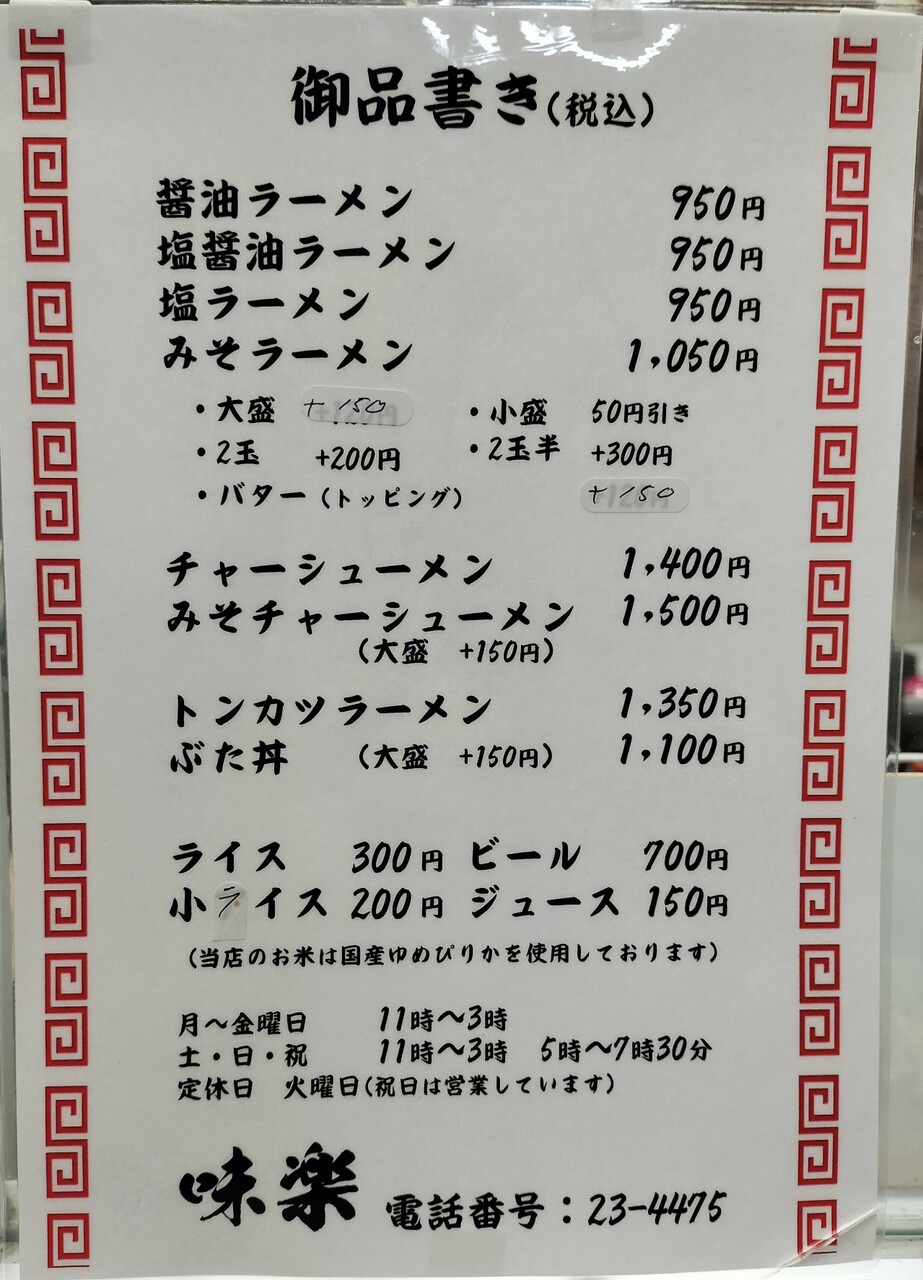 御品書き(税込)
醤油ラーメン 950円
塩醤油ラーメン 950円
塩ラーメン 950円
みそラーメン 1,050円
・大盛 +150 ・小盛 50円引き
・2玉 +200円 ・2玉半 +300円
・バター(トッピング) +150
チャーシューメン 1,400円
みそチャーシューメン 1,500円
(大盛 +150円)
トンカツラーメン 1,350円
ぶた丼 (大盛 +150円) 1,100円
ライス 300円 ビール 700円
小ライス 200円 ジュース 150円
(当店のお米は国産ゆめぴりかを使用しております)
月～金曜日 11時～3時
土・日・祝 11時～3時 5時～7時30分
定休日 火曜日(祝日は営業しています)
味楽 電話番号：23-4475